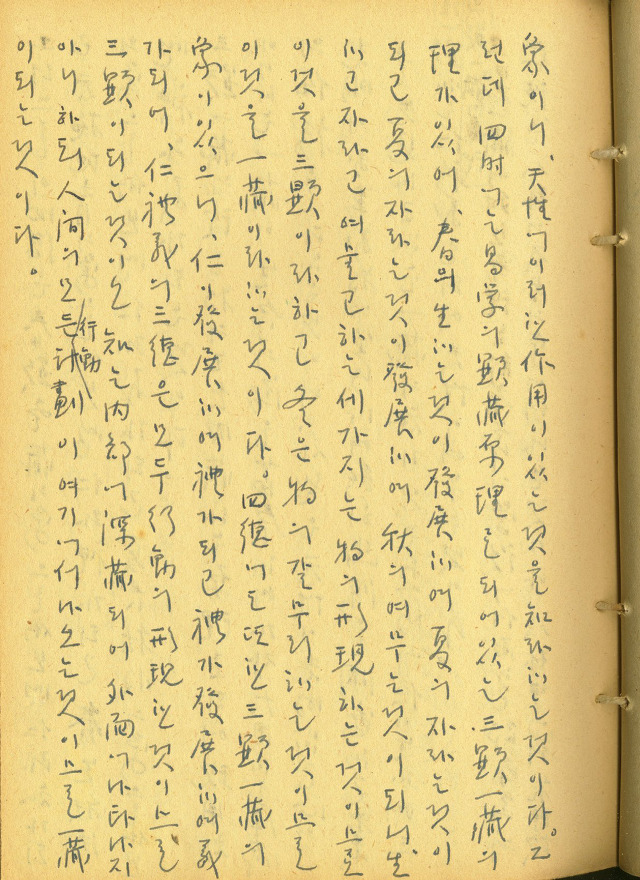 象이니, 天性에 이러한 作用이 있는 것을 知라 하는 것이다. 그
런데 四時에는 易学의 顯藏原理로 되어 있는 三顯一藏의
理가 있어, 春의 生하는 것이 發展하여 夏의 자라는 것이
되고 夏의 자라는 것이 發展하여 秋의 여무는 것이 되니, 生
하고 자라고 여물고 하는 세가지는 物의 形現하는 것이므로
이것을 三顯이라 하고 冬은 物의 갈무리하는 것이므로
이것을 一藏이라 하는 것이다. 四德에도 또한 三顯一藏의
象이 있으니, 仁이 發展하여 禮가 되고 禮가 發展하여 義
가 되어, 仁禮義의 三德은 모두 行動의 形現한 것이므로
三顯이 되는 것이오 知는 內部에 深藏되어 外面에 나타나지
아니하되 人間의 모든 行動計劃이 여기에서 나오는 것이므로 一藏
이 되는 것이다.